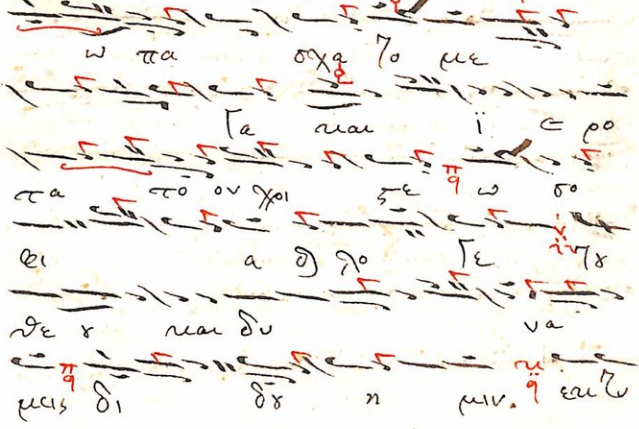 ω πα σχα το με
γα και ϊ ε ρο
πα το ον χρι ςε ω σο
φι α θ λο γε τȣ
θε ȣ και δυ να
μεις δι δȣ η μιν. εκ τυ